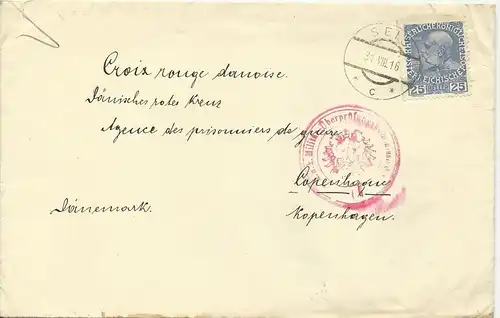 SEL
31.VIII.16
* C *
KAISERLICHE KÖNIGLICHE
ÖSTERREICHISCHE
25 HELLER 25
Croix rouge danoise.
Dänisches rotes Kreuz
Agence des prisonniers de guerre
Copenhague
Dänemark.
Kopenhagen.